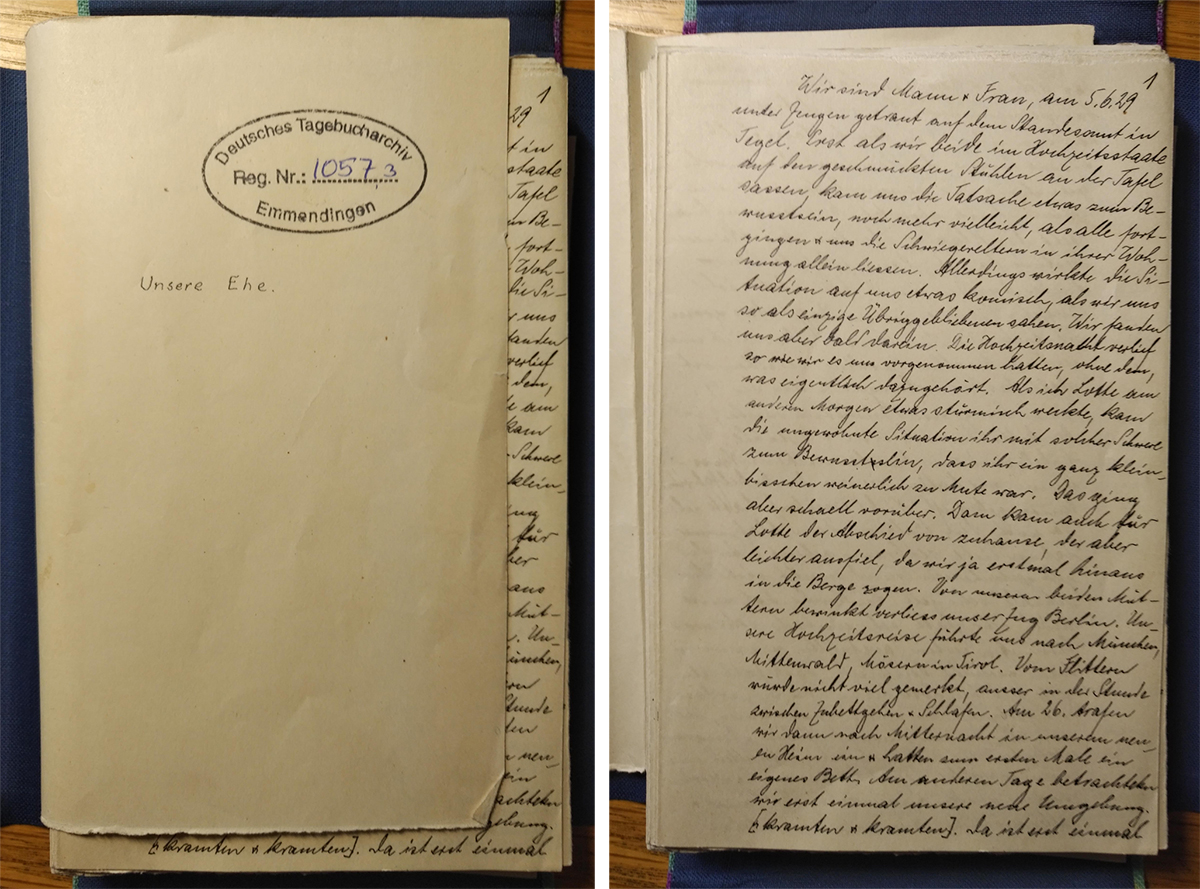 Deutsches Tagebucharchiv
Reg. Nr.: 1057,3
Emmendingen
Unsere Ehe.
1
29
t in
staate
Tafel
m Be-
fort-
Woh-
die Si-
r uns
fanden
verlief
dem,
te am
kam
Schwere
klein-
für
ber
aus
Müt-
. Un-
ünchen,
ern
tunde
fen
neu-
ein
achteten
gebung.
[kramten & kramten]. Da ist erst einmal
1
Wir sind Mann & Frau, am 5.6.29
unter Zeugen getraut auf dem Standesamt in
Tegel. Erst als wir beide im Hochzeitsstaate
auf den geschmückten Stühlen an der Tafel
sassen, kam uns die Tatsache etwas zum Be-
wusstsein, noch mehr vielleicht, als alle fort-
gingen & uns die Schwiegereltern in ihrer Woh-
nung allein liessen. Allerdings wirkte die Si-
tuation auf uns etwas komisch, als wir uns
so als einzige Übriggebliebenen sahen. Wir fanden
uns aber bald darein. Die Hochzeitsnacht verlief
so wie wir es uns vorgenommen hatten, ohne dem,
was eigentlich dazugehört. Als ich Lotte am
anderen Morgen etwas stürmisch weckte, kam
die ungewohnte Situation ihr mit solcher Schwere
zum Bewusstsein, dass ihr ein ganz klein-
bisschen weinerlich zu Mute war. Das ging
aber schnell vorüber. Dann kam auch für
Lotte der Abschied von zuhause, der aber
leichter ausfiel, da wir ja erstmal hinaus
in die Berge zogen. Von unseren beiden Müt-
tern bewinkt verliess unser Zug Berlin. Un-
sere Hochzeitsreise führte uns nach München,
Mittenwald, Mösern in Tirol. Vom Flittern
wurde nicht viel gemerkt, ausser in der Stunde
zwischen Zubettgehen & Schlafen. Am 26. trafen
wir dann nach Mitternacht in unserem neu-
en Heim ein & hatten zum ersten Male ein
eigenes Bett. Am anderen Tage betrachteten
wir erst einmal unsere neue Umgebung.
[kramten & kramten]. Da ist erst einmal